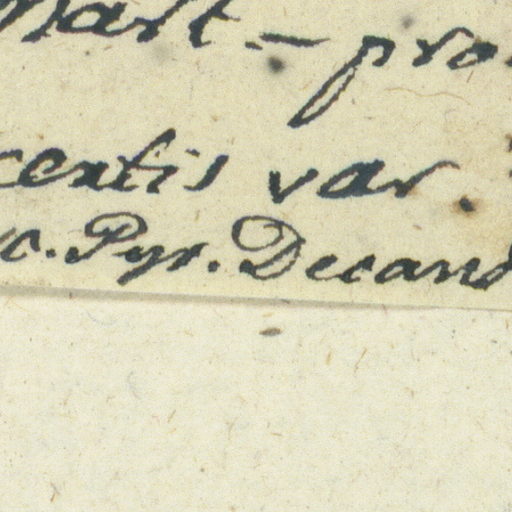 Mart. – pro
centis var.
oc. Pyr. Decand